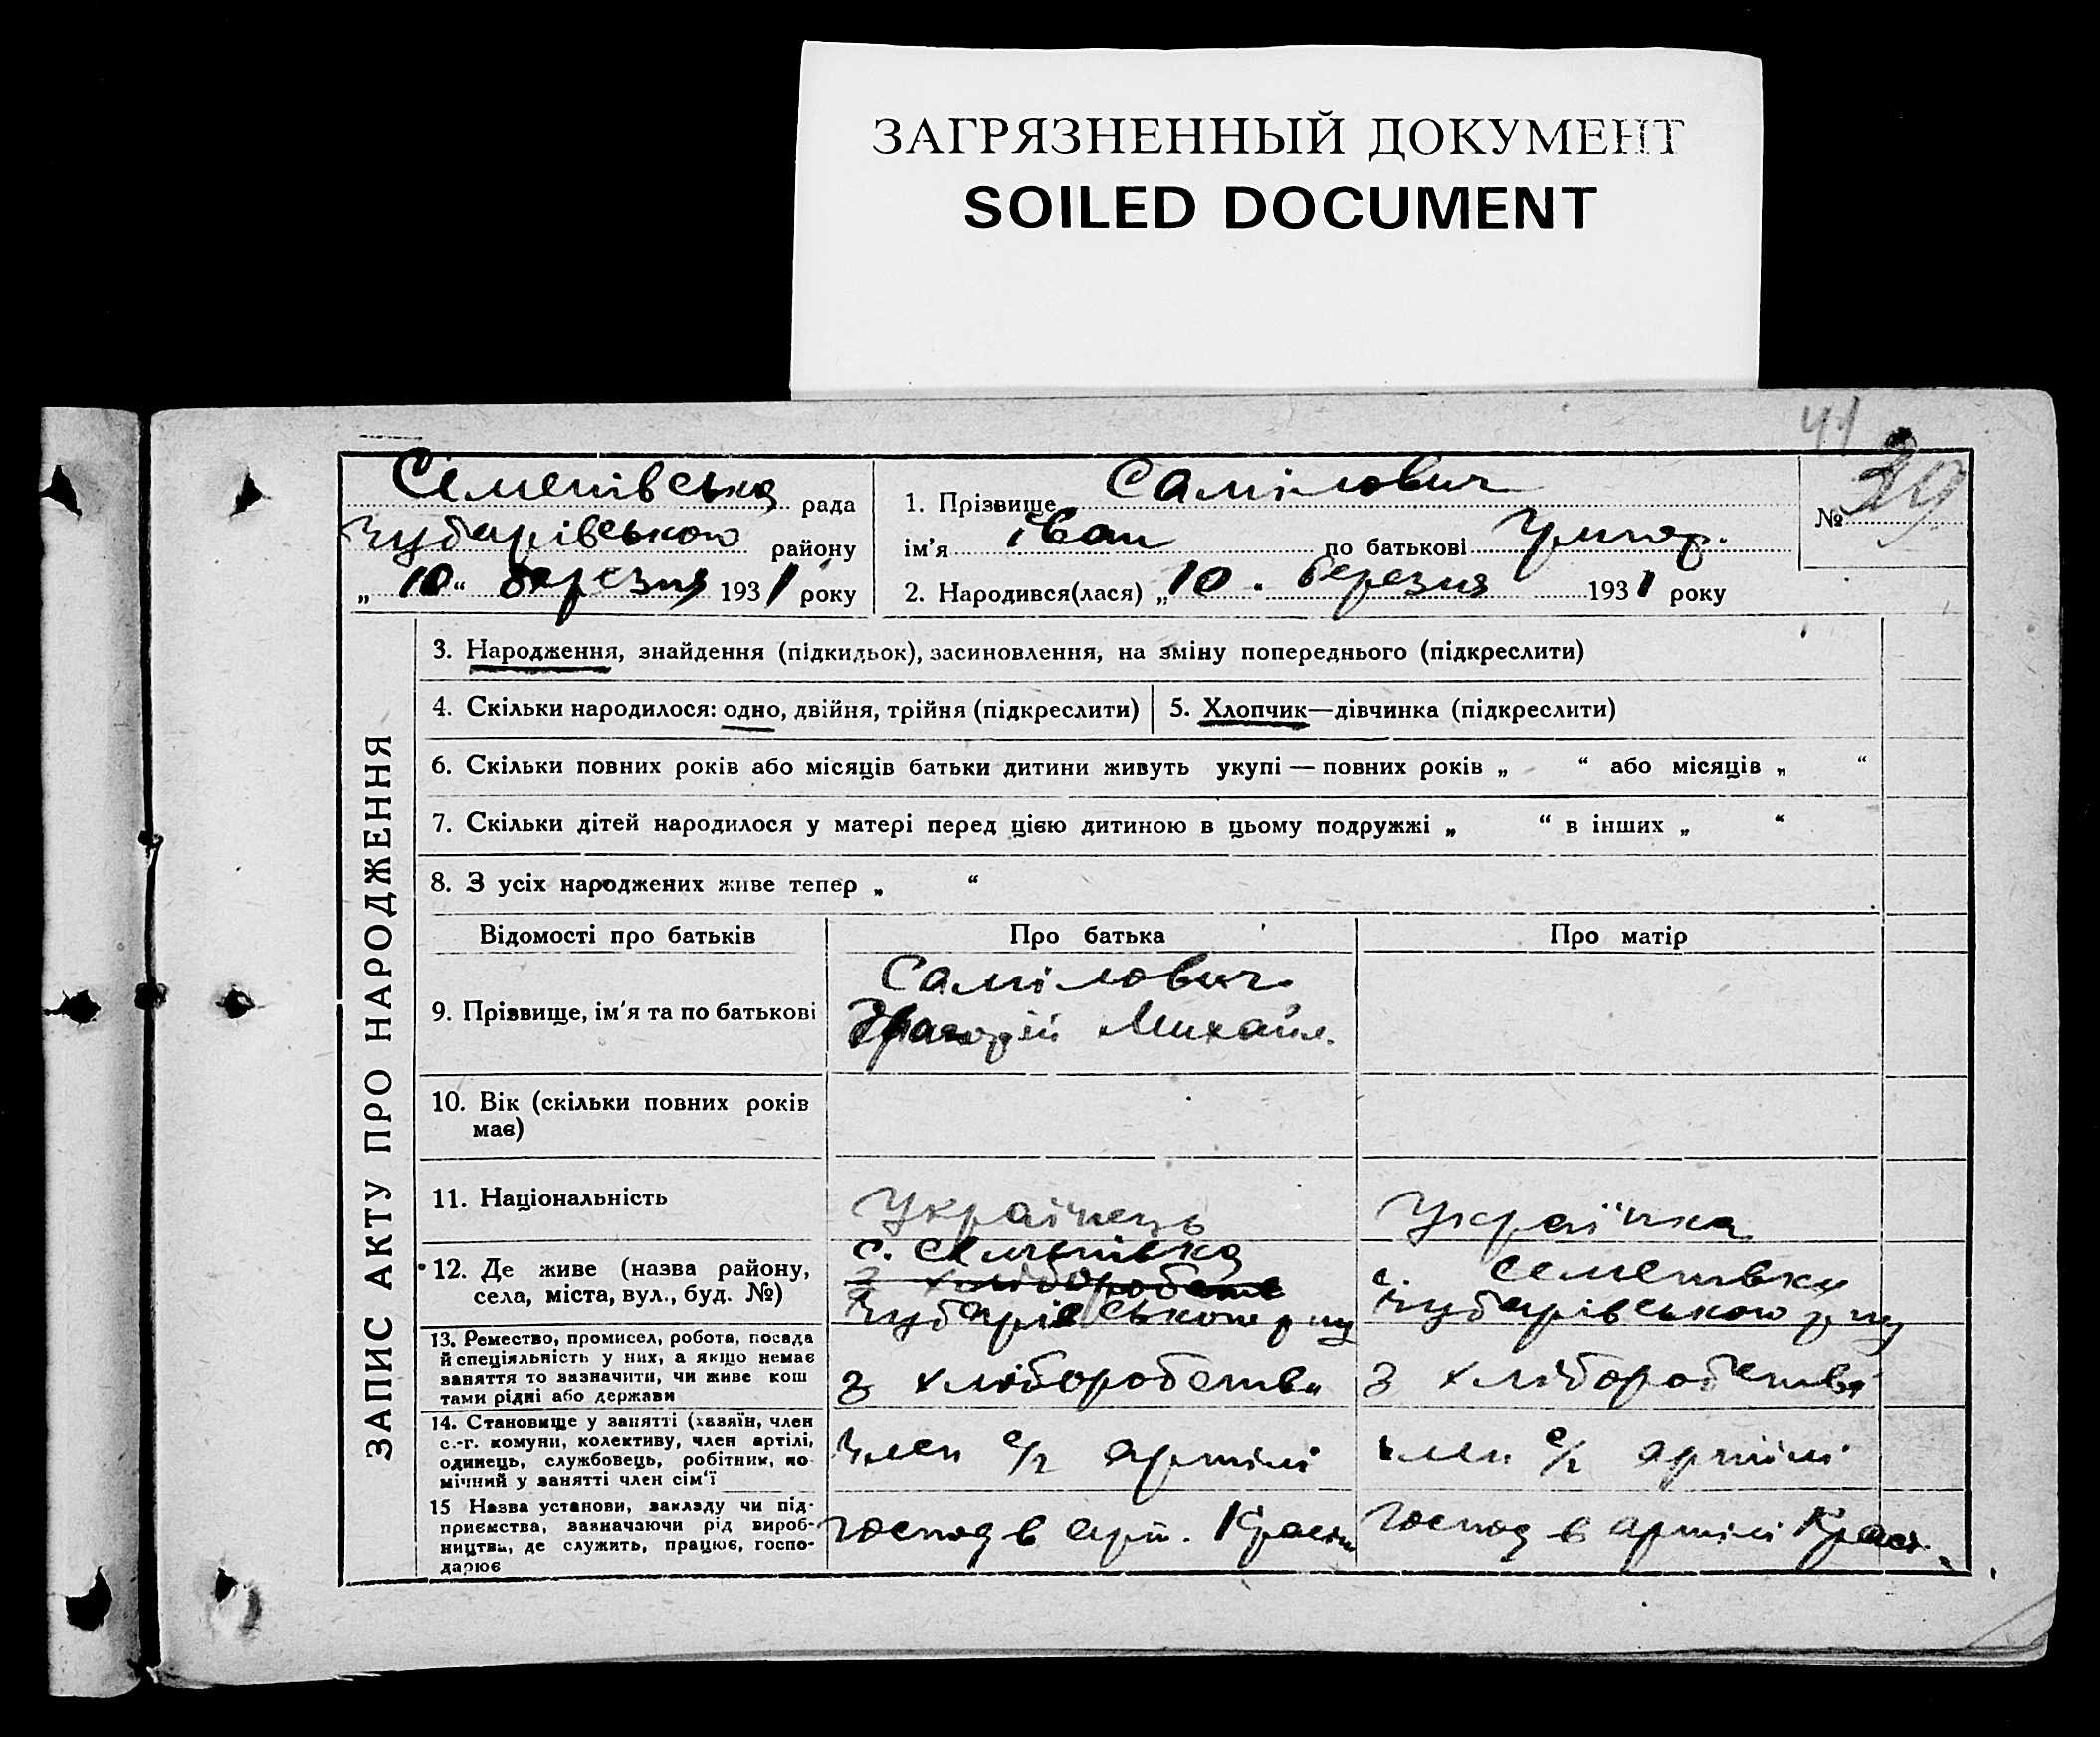 ЗАГРЯЗНЕННЫЙ ДОКУМЕНТ
SOILED DOCUMENT
41
Семенівська рада
Чубарівського району
„ 10 “ березня 1931 року
1. Прізвище Самілович
ім'я Іван по батькові Григор.
2. Народився(лася) „ 10 “ березня 1931 року
№ 39
ЗАПИС АКТУ ПРО НАРОДЖЕННЯ
3. Народження, знайдення (підкидьок), засиновлення, на зміну попереднього (підкреслити)
4. Скільки народилося: одно, двійня, трійня (підкреслити)
5. Хлопчик—дівчинка (підкреслити)
6. Скільки повних років або місяців батьки дитини живуть укупі — повних років „ “ або місяців „ “
7. Скільки дітей народилося у матері перед цією дитиною в цьому подружжі „ “ в інших „ “
8. З усіх народжених живе тепер „ “
Відомості про батьків
Про батька
Про матір
9. Прізвище, ім'я та по батькові
Самілович
Григорій Михайл.
10. Вік (скільки повних років
має)
11. Національність
Українець
Українка
12. Де живе (назва району,
села, міста, вул., буд. №)
с. Семенівка
з хліборобств
Чубарівського р-ну
с. Семенівка
Чубарівського р-ну
13. Ремество, промисел, робота, посада
й спеціяльність у них, а якщо немає
заняття то зазначити, чи живе кош
тами рідні або держави
з хліборобства
з хліборобства
14. Становище у занятті (хазяїн, член
с.-г. комуни, колективу, член артілі,
одинець, службовець, робітник, по
мічний у занятті член сім'ї
член с/г артілі
член с/г артілі
15 Назва установи, закладу чи під-
приємства, зазначаючи рід вироб-
ництва, де служить, працює, госпо-
дарює
господ в арт.
господ в артілі